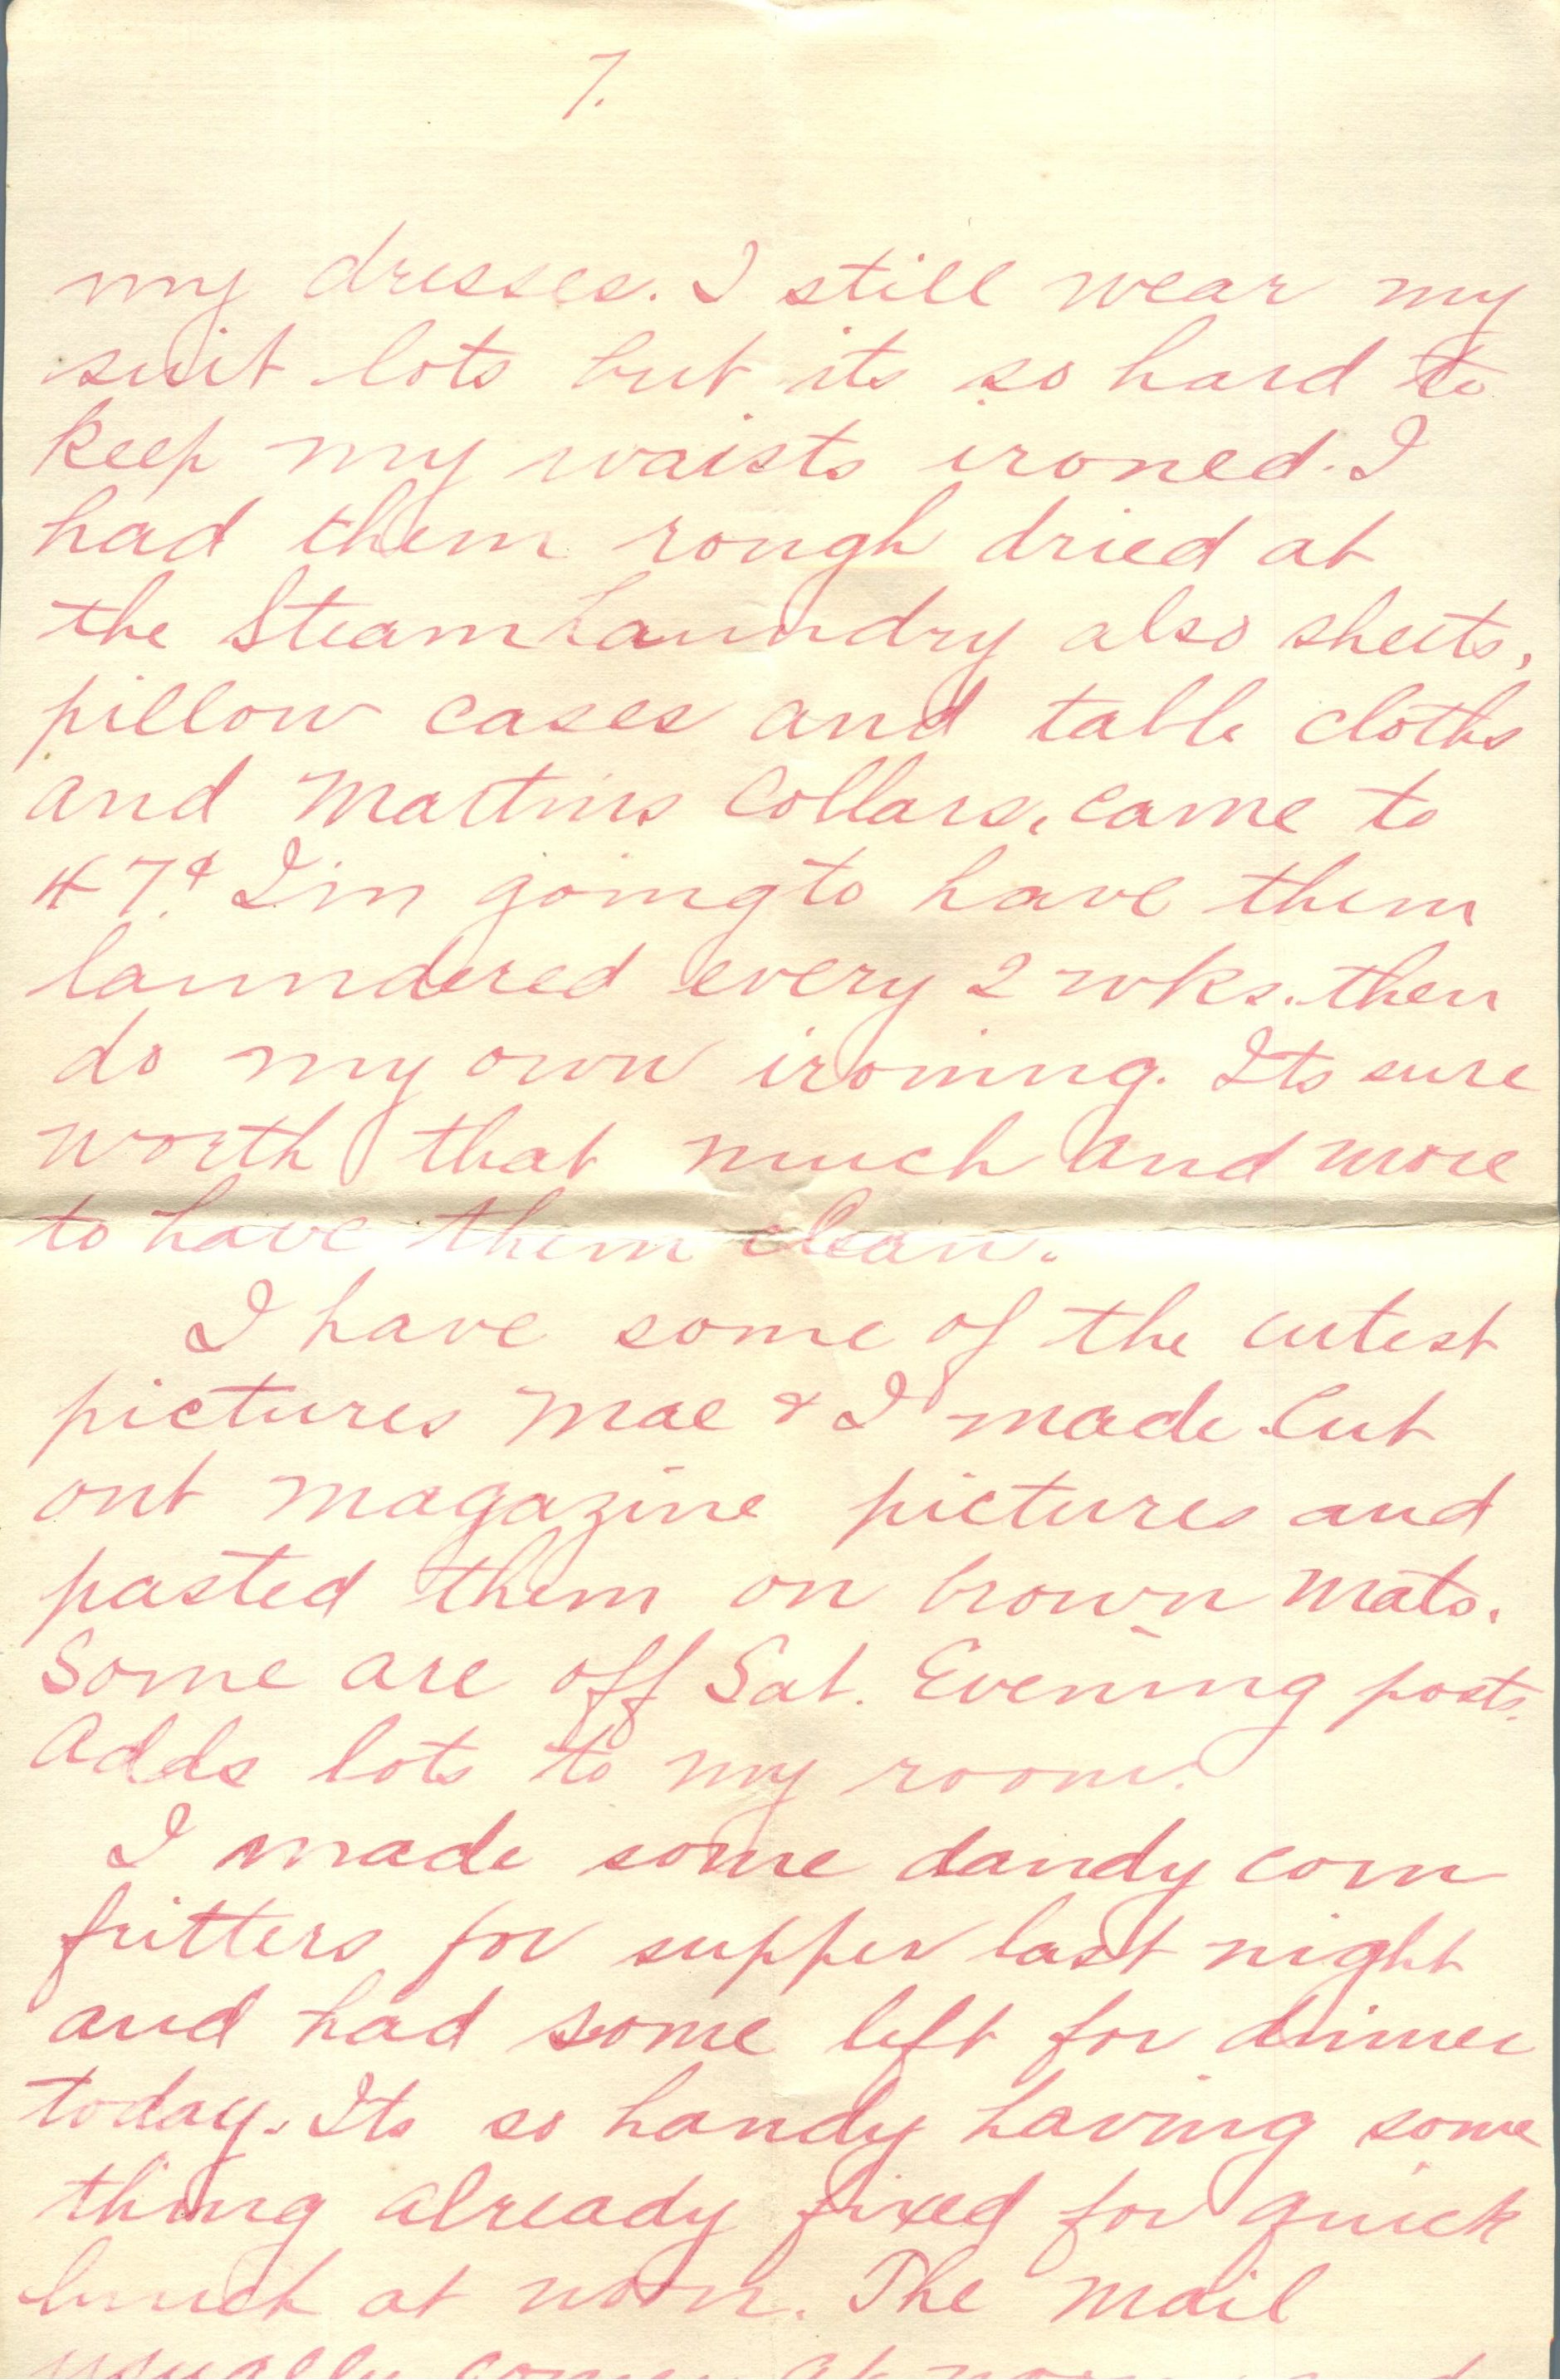 7.
my dresses. I still wear my
suit lots but its so hard to
keep my waists ironed. I
had them rough dried at
the Steam Laundry also sheets,
pillow cases and table cloths
and Martins collars, came to
47¢. I'm going to have them
laundered every 2 wks. then
do my own ironing. Its sure
worth that much and more
to have them clean.
I have some of the cutest
pictures Mae & I made. Cut
out magazine pictures and
pasted them on brown mats.
Some are off Sat. Evening posts.
Adds lots to my room.
I made some dandy corn
fritters for supper last night
and had some left for dinner
today. Its so handy having some
thing already fixed for quick
lunch at noon. The mail
usually comes at noon